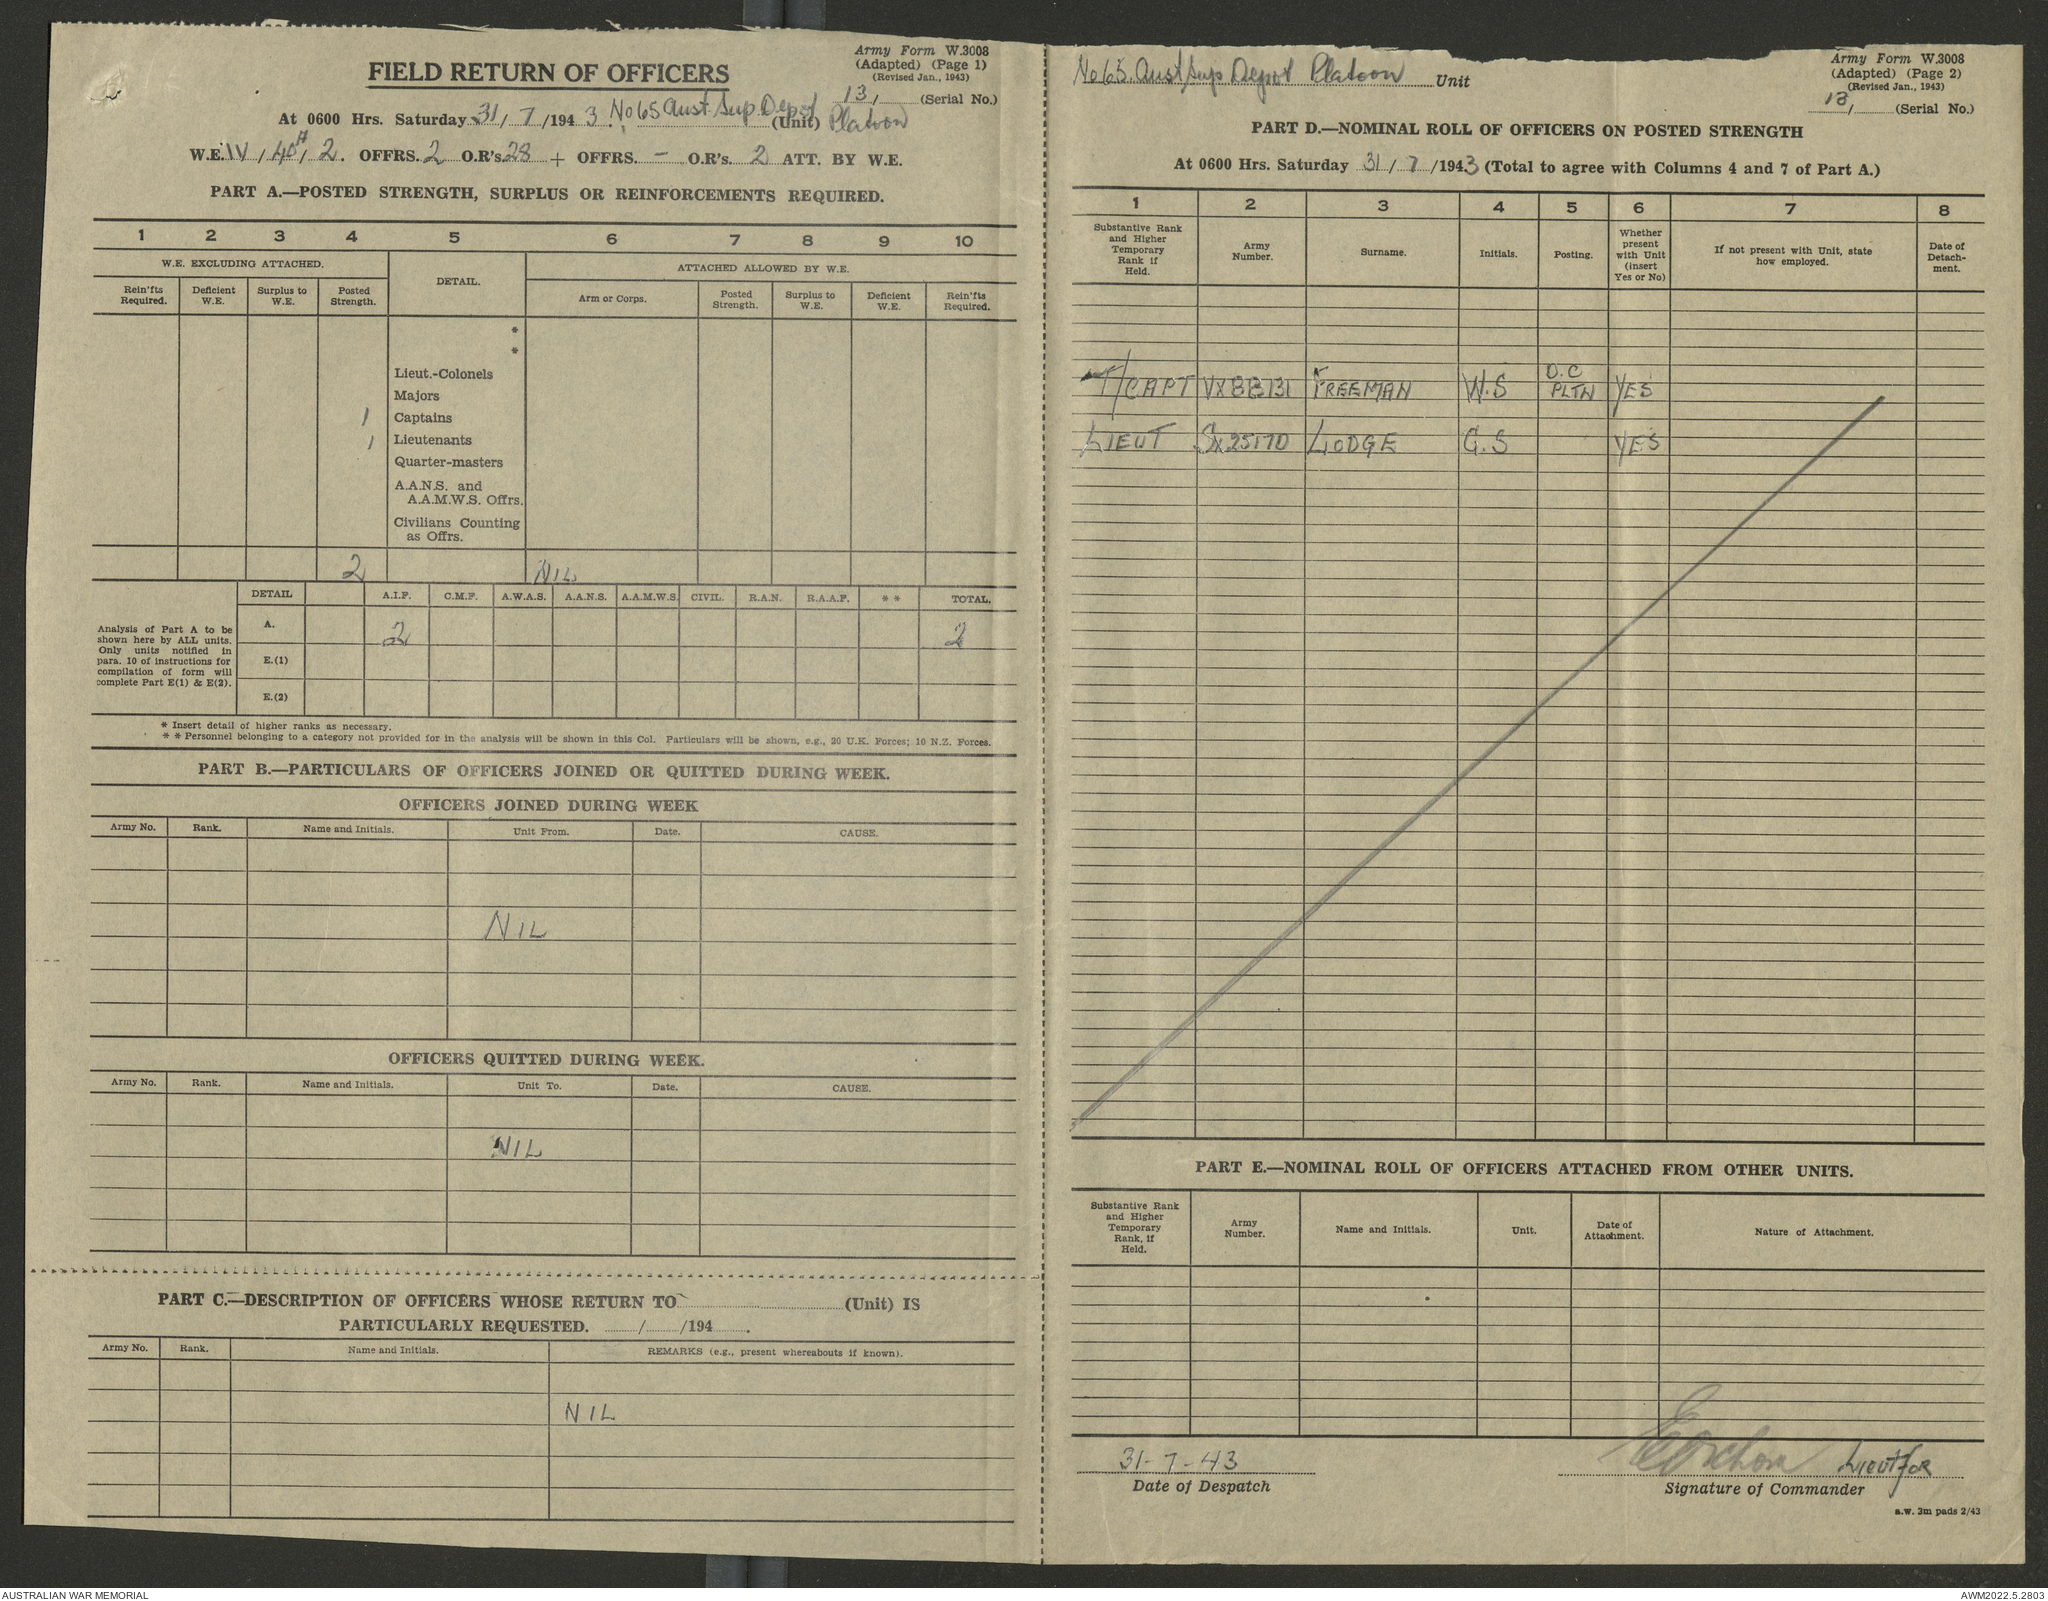 Army Form W.3008
(Adapted) (Page 1)
(Revised Jan., 1943)
FIELD RETURN OF OFFICERS
13, (Serial No.)
At 0600 Hrs. Saturday 31/7/1943. No 65 Aust Sup Depot (Unit) Platoon
W.E. IV, 40A, 2. OFFRS. 2 O.R's 28 + OFFRS. - O.R's. 2 ATT. BY W.E.
PART A.—POSTED STRENGTH, SURPLUS OR REINFORCEMENTS REQUIRED.
1 2 3 4 5 6 7 8 9 10
W.E. EXCLUDING ATTACHED. DETAIL. ATTACHED ALLOWED BY W.E.
Rein'fts Required. Deficient W.E. Surplus to W.E. Posted Strength. Arm or Corps. Posted Strength. Surplus to W.E. Deficient W.E. Rein'fts Required.
*
*
Lieut.-Colonels
Majors
1 Captains
1 Lieutenants
Quarter-masters
A.A.N.S. and
A.A.M.W.S. Offrs.
Civilians Counting
as Offrs.
2 NIL
DETAIL A.I.F. C.M.F. A.W.A.S. A.A.N.S. A.A.M.W.S. CIVIL. R.A.N. R.A.A.F. ** TOTAL.
Analysis of Part A to be
shown here by ALL units.
Only units notified in
para. 10 of instructions for
compilation of form will
complete Part E(1) & E(2).
A. 2 2
E.(1)
E.(2)
* Insert detail of higher ranks as necessary.
** Personnel belonging to a category not provided for in the analysis will be shown in this Col. Particulars will be shown, e.g., 20 U.K. Forces; 10 N.Z. Forces.
PART B.—PARTICULARS OF OFFICERS JOINED OR QUITTED DURING WEEK.
OFFICERS JOINED DURING WEEK
Army No. Rank. Name and Initials. Unit From. Date. CAUSE.
NIL
OFFICERS QUITTED DURING WEEK.
Army No. Rank. Name and Initials. Unit To. Date. CAUSE.
NIL
PART C.—DESCRIPTION OF OFFICERS WHOSE RETURN TO (Unit) IS
PARTICULARLY REQUESTED. / /194 .
Army No. Rank. Name and Initials. REMARKS (e.g., present whereabouts if known).
NIL
Army Form W.3008
(Adapted) (Page 2)
(Revised Jan., 1943)
No 65. Aust Sup Depot Platoon Unit
13, (Serial No.)
PART D.—NOMINAL ROLL OF OFFICERS ON POSTED STRENGTH
At 0600 Hrs. Saturday 31/7/1943 (Total to agree with Columns 4 and 7 of Part A.)
1 2 3 4 5 6 7 8
Substantive Rank and Higher Temporary Rank if Held. Army Number. Surname. Initials. Posting. Whether present with Unit (insert Yes or No) If not present with Unit, state how employed. Date of Detach-ment.
T/CAPT VX88131 FREEMAN W.S O.C PLTN YES
LIEUT SX25170 LODGE G.S YES
PART E.—NOMINAL ROLL OF OFFICERS ATTACHED FROM OTHER UNITS.
Substantive Rank and Higher Temporary Rank, if Held. Army Number. Name and Initials. Unit. Date of Attachment. Nature of Attachment.
31-7-43 Lieut for
Date of Despatch Signature of Commander
a.w. 3m pads 2/43
AUSTRALIAN WAR MEMORIAL AWM2022.5.2803